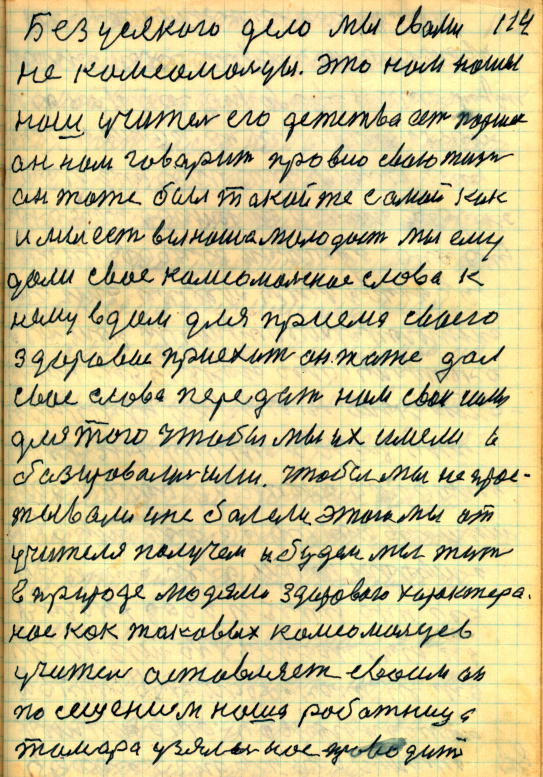 Без усякого дело мы свами 114
не комсомольцы. Это нам
наш учител его детства ест
он нам говарит про
он тоже был такой же самой как
и мы ест вы наша молодост мы ему
дали свое комсомолское слова к
нему в дом для приема своего
здоровие приехат он тоже дал
свое слова передат нам свои силы
для того чтобы мы их имели и
базировали ими. чтобы мы не прос-
тывали и не балели этого мы от
учителя получем и будем мы жит
в природе людями здорового характера.
нас как таковых комсомолцев
учител оставляет своим
по сещением наша работница
тамара узяла нас